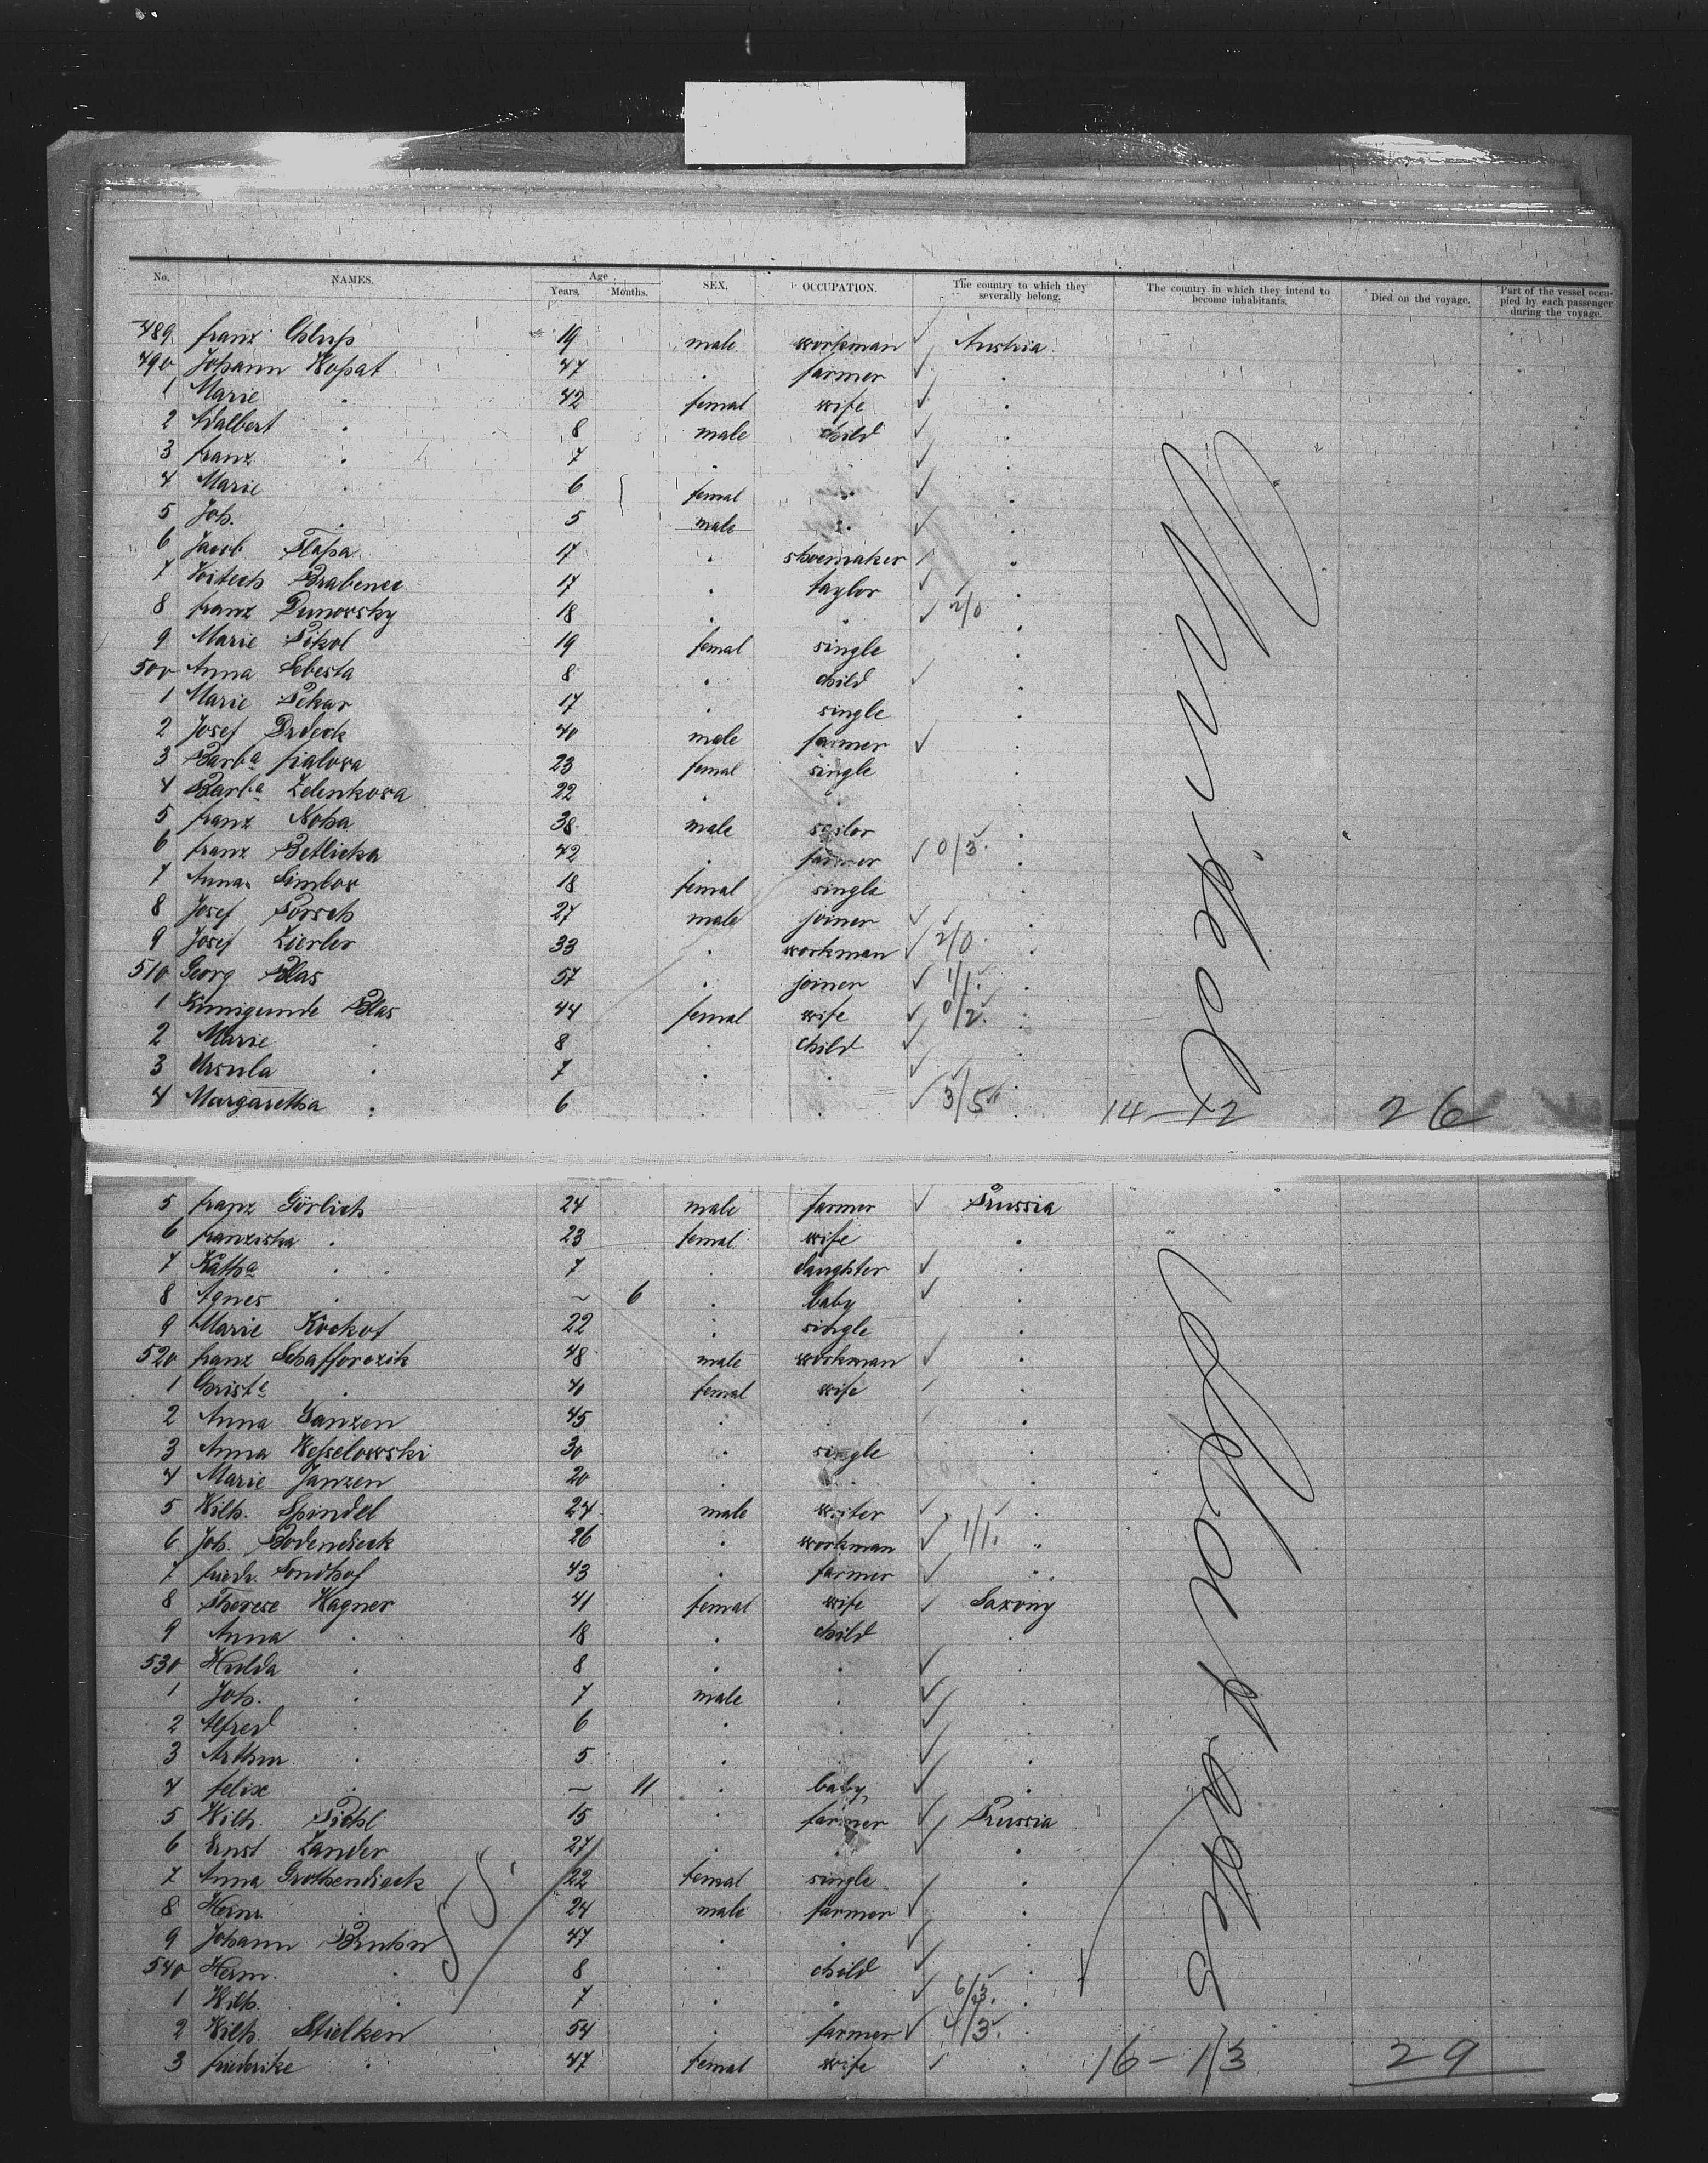 No. NAMES. Age Years, Months. SEX. OCCUPATION. The country to which they severally belong. The country in which they intend to become inhabitants. Died on the voyage. Part of the vessel occupied by each passenger during the voyage.
489 Franz Chlup 19 male workman Austria
490 Johann Kopat 47 farmer
1 Marie 42 femal wife
2 Adalbert 8 male child
3 Franz 7
4 Marie 6 femal
5 Joh. 5 male
6 Jacob Slapa 17 shoemaker
7 Voitech Brabenec 17 taylor
8 Franz Dunovsky 18 2/0
9 Marie Sikol 19 femal single
500 Anna Sebesta 8 child
1 Marie Pekar 17 single
2 Josef Drdeck 40 male farmer
3 Barba Fialova 23 femal single
4 Barba Zelenkova 22
5 Franz Noha 38 male sailor
6 Franz Betlicka 42 farmer 0/3
7 Anna 18 femal single
8 Josef Porsch 27 male joiner
9 Josef Zierler 33 workman 2/0
510 Georg Blas 57 joiner 1/1
1 Kunigunde Blas 44 femal wife 0/2
2 Marie 8 child
3 Ursula 7
4 Margaretha 6 3/5 14-12 26
5 Franz Görlich 24 male farmer Prussia
6 Franziska 23 femal wife
7 Katha 7 daughter
8 Agnes ~ 6 baby
9 Marie Kockot 22 single
520 Franz Schafforczik 48 male workman
1 Christe 40 femal wife
2 Anna Janzen 45
3 Anna Wesselowski 30 single
4 Marie Janzen 20
5 Wilh. Spindel 24 male waiter
6 Joh. Bodendieck 26 workman 1/1
7 Friedr. Sondhof 43 farmer
8 Therese Wagner 41 femal wife Saxony
9 Anna 18 child
530 Hulda 8
1 Joh. 7 male
2 Alfred 6
3 Arthur 5
4 Felix ~ 11 baby
5 Wilh. Piehl 15 farmer Prussia
6 Ernst Zander 27
7 Anna Grothendieck 22 femal single
8 Heinr. 24 male farmer
9 Johann Bruhn 47
540 Herm. 8 child
1 Wilh. 7 6/3
2 Wilh. Stielken 54 farmer 4/3
3 Friederike 47 femal wife 16-13 29